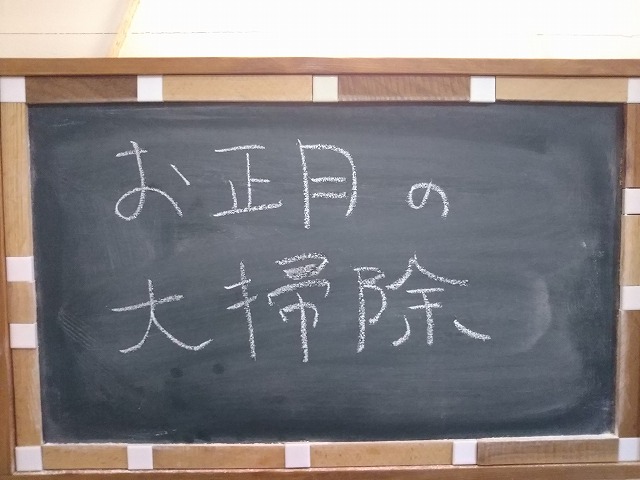 お正月の
大掃除